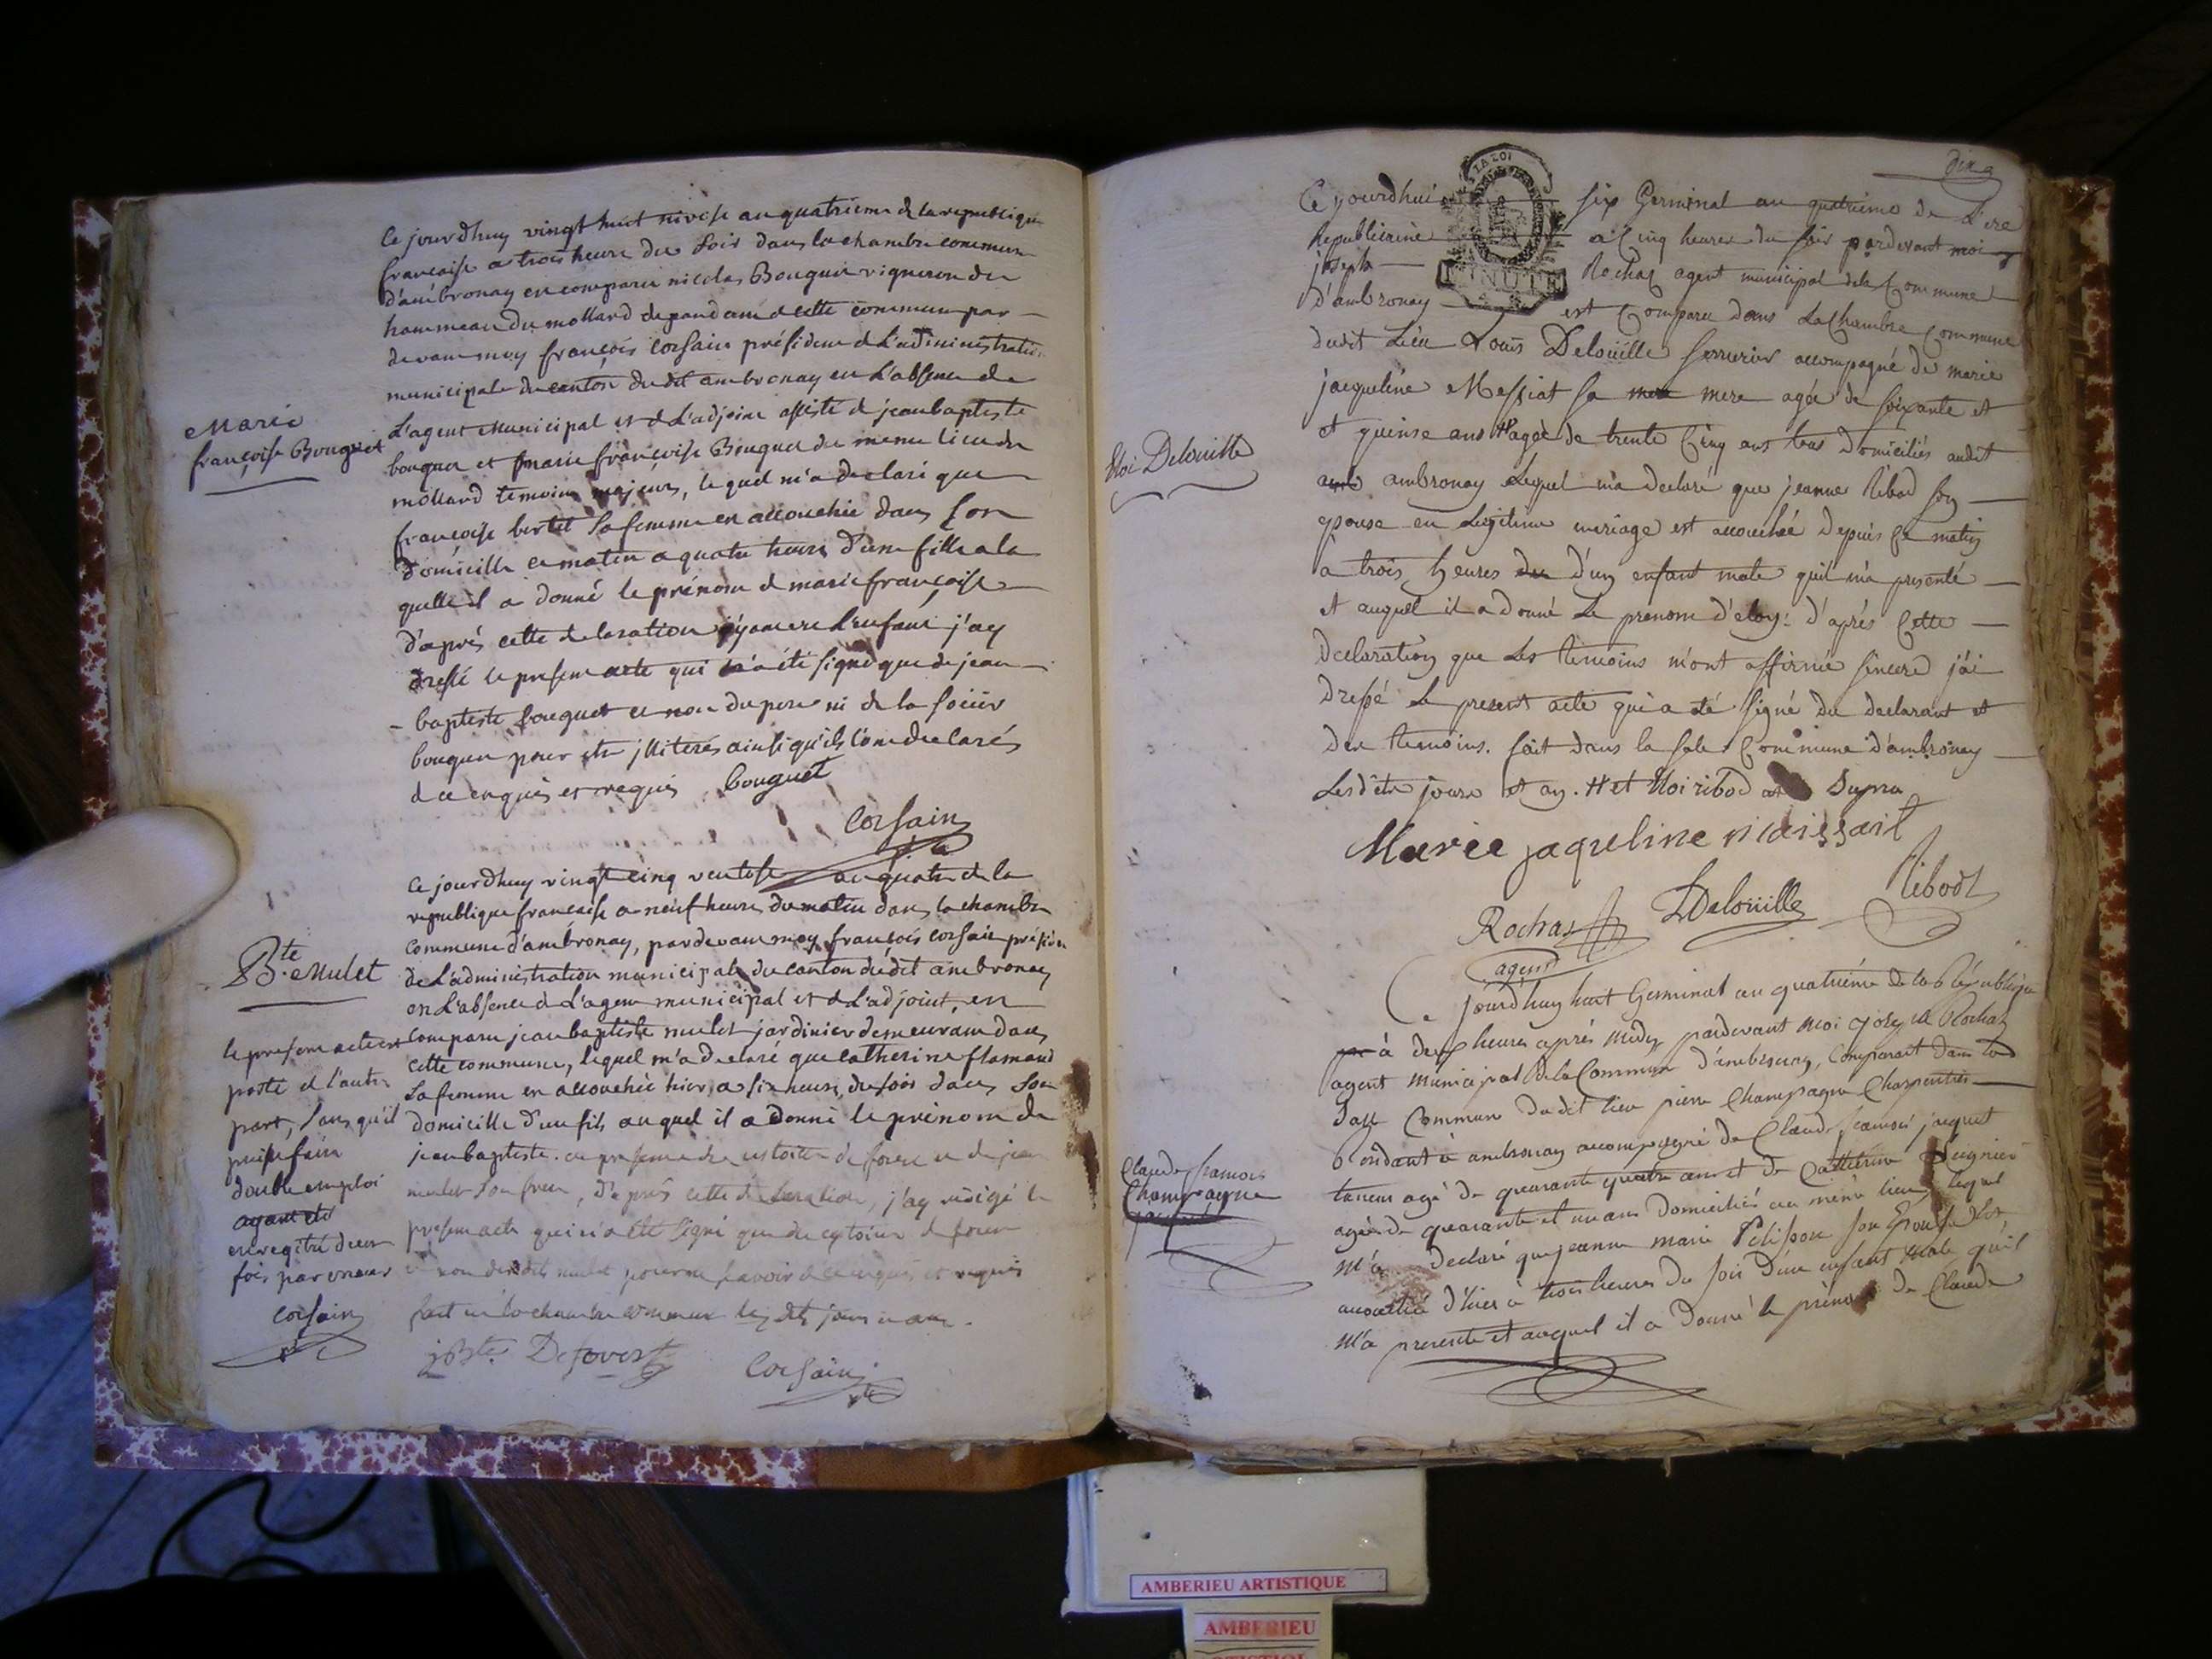 Ce jourdhuy vingt huit nivose an quatrieme de la republique
francaise a trois heure du soir dans la chambre commune
d'ambronay en comparu nicolas Bouquet vigneron du
hammeau du mollard dependant de cette commune par —
devant moy françois Corsain président de L'administration
municipale du canton dudit ambronay en L'absence de
L'agent municipal et de L'adjoint assisté de jean baptiste
bouquet et marie françoise Bouquet du meme lieu du
mollard temoins majeurs, le quel m'a declaré que
françoise bertet sa femme en accouchée dans son
domicille ce matin a quatre heures d'une fille a la
quelle il a donné le prénom de marie françoise
d'après cette declaration l'enfant j'ay
dressé le present acte qui n'a été signé que de jean —
- baptiste bouquet et non du pere ni de la soeur
bouquet pour etre illiterés ainsi qu'ils l'ont declarés
de ce enquis et requis bouquet
Corsain
Marie
françoise Bouquet
Ce jourdhuy vingt cinq ventose an quatre de la
republique francaise a neuf heures du matin dans la chambre
commune d'ambronay, pardevant moy françois corsain présiden
de L'administration municipale du canton dudit ambronay
en L'absence de L'agent municipal et de L'adjoint, en
comparu jean baptiste mulet jardinier demeurant dans
cette commune, lequel m'a declaré que catherine flamand
sa femme en accouchée hier a six heures du soir dans son
domicille d'un fils auquel il a donné le prénom de
jean baptiste. en presence de de jean
mulet son frere, d'après cette declaration, j'ay redigé le
present acte qui n'a été signé que du
et non dudit mulet pour ne savoir de ce enquis et requis
fait en la chambre commune les dits jours et an.
jBte. Deforest Corsain
Bte. Mulet
le present acte est
porté de l'autre
part, sans qu'il
puisse faire
double emploi
ayant été
enregistré deux
fois par erreur
Corsain
dix
Ce jourdhui six Germinal an quatrieme de L'ere
Republicaine a Cinq heures du soir pardevant moi
joseph — Rochas agent municipal dela Commune
d'ambronay — est Comparu dans La Chambre Commune
dudit Lieu Louis Delouille serrurier accompagné de marie
jacqueline Messiat sa mere agée de soixante et
et quinse ans # agée de trente Cinq ans tous Domiciliés audit
ambronay Lequel m'a declaré que jeanne Ribod son —
epouse en Legitime mariage est accouchée Depuis Ce matin
a trois heures d'un enfant male qu'il m'a presenté —
et auquel il a donné Le prenom d'eloy: d'après Cette —
declaration que Les temoins m'ont affirmé sincere j'ai
dressé Le present acte qui a été signé du declarant et
des temoins. fait dans la sale Commune d'ambronay —
Lesdits jours et an. # et Eloi ribod Supra
Marie jaqueline maissait
Rochas LDelouille Ribod
agent
Eloi Delouille
LA LOI
MINUTE
Ce jourd'huy huit Germinal an quatrième de la République
à deux heures après midy pardevant moi joseph Rochas
agent municipal de la Commune d'ambronay, Comparait dans la
Sale Commune dudit lieu pierre Champagne Charpentier —
Residant à ambronay accompagné de Claude francois jacquet
taneur agé de quarante quatre ans et de Catherine
agée de quarante et un ans Domiciliés au même lieu, lequel
m'a declaré que jeanne marie Pelisson son Epouse est
accouchée d'hier à trois heures du soir D'un enfant male qu'il
m'a presenté et auquel il a Donné le prénom de Claude
Claude francois
Champagne
AMBERIEU ARTISTIQUE
AMBERIEU
ARTISTIQUE